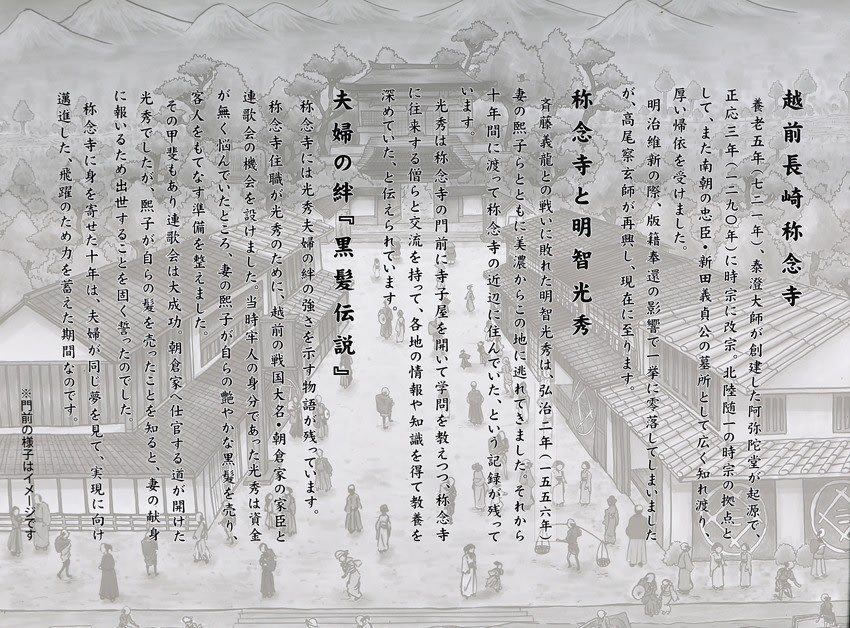 越前長崎称念寺
養老五年（七二一年）、泰澄大師が創建した阿弥陀堂が起源で、
正応三年（一二九〇年）に時宗に改宗。北陸随一の時宗の拠点と
して、また南朝の忠臣・新田義貞公の墓所として広く知れ渡り、
厚い帰依を受けました。
明治維新の際、版籍奉還の影響で一挙に零落してしまいました
が、高尾察玄師が再興し、現在に至ります。
称念寺と明智光秀
斉藤義龍との戦いに敗れた明智光秀は、弘治二年（一五五六年）
妻の熙子らとともに美濃からこの地に逃れてきました。それから
十年間に渡って称念寺の近辺に住んでいた、という記録が残って
います。
光秀は称念寺の門前に寺子屋を開いて学問を教えつつ、称念寺
に往来する僧らと交流を持って、各地の情報や知識を得て教養を
深めていた、と伝えられています。
夫婦の絆『黒髪伝説』
称念寺には光秀夫婦の絆の強さを示す物語が残っています。
称念寺住職が光秀のために、越前の戦国大名・朝倉家の家臣と
連歌会の機会を設けました。当時牢人の身分であった光秀は資金
が無く悩んでいたところ、妻の熙子が自らの艶やかな黒髪を売り、
客人をもてなす準備を整えました。
その甲斐もあり連歌会は大成功。朝倉家へ仕官する道が開けた
光秀でしたが、熙子が自らの髪を売ったことを知ると、妻の献身
に報いるため出世することを固く誓ったのでした。
称念寺に身を寄せた十年は、夫婦が同じ夢を見て、実現に向け
邁進した、飛躍のため力を蓄えた期間なのです。
※門前の様子はイメージです